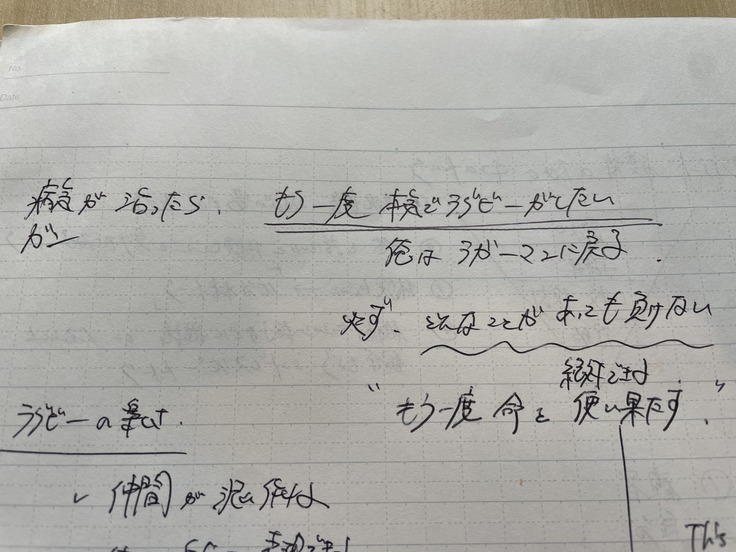 No.
Date
病気が治ったら、 もう一度 本気でラグビーがしたい
が
俺はラガーマンに戻る.
必ず. どんなことがあっても負けない
絶対できる.
"もう一度 命を 使い果たす."
ラグビーの
✓ 仲間が
This